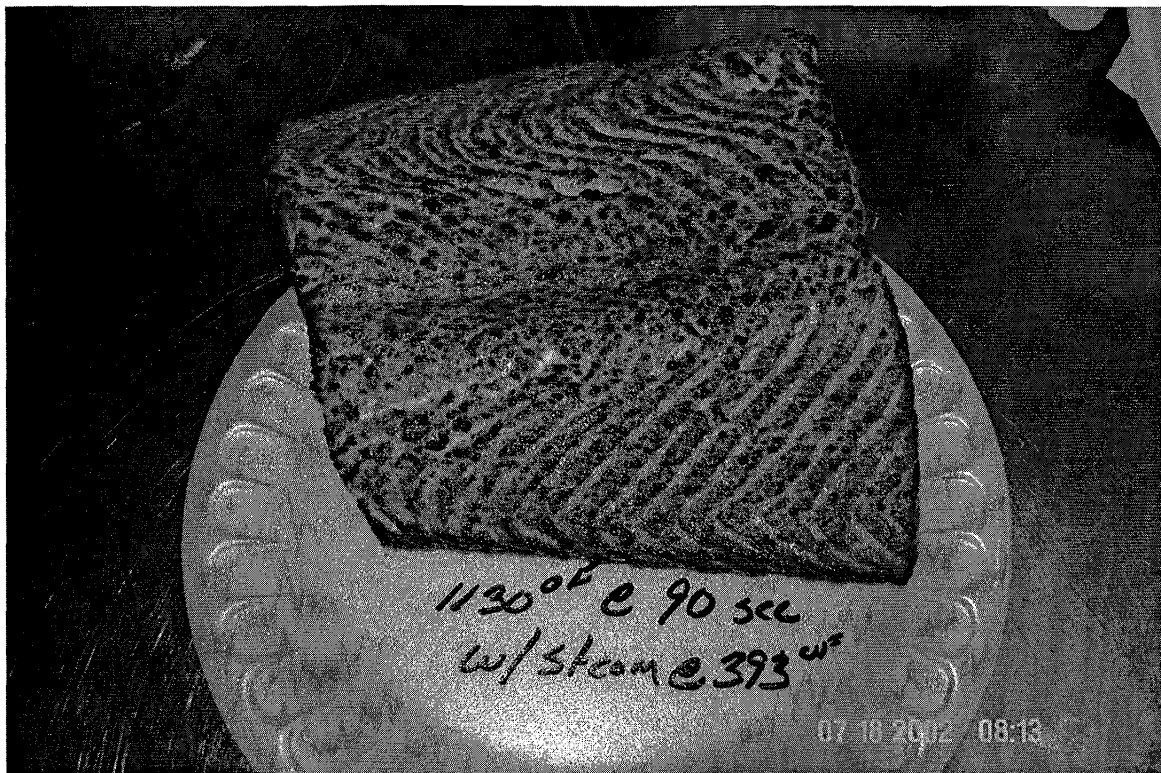 1130 °F @ 90 sec
w/ steam @ 393
07 18 2002 08:13